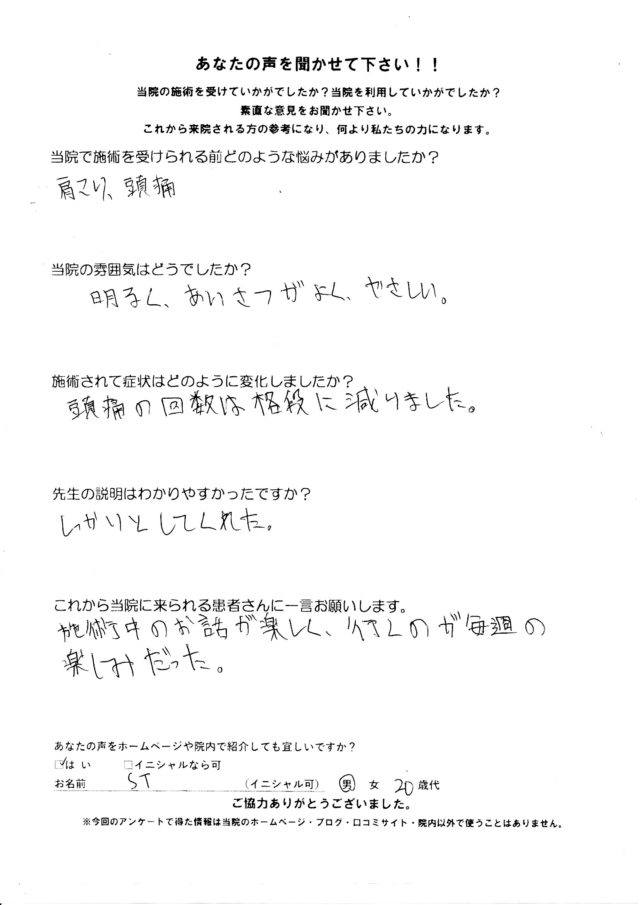 あなたの声を聞かせて下さい！！
当院の施術を受けていかがでしたか？当院を利用していかがでしたか？
素直な意見をお聞かせ下さい。
これから来院される方の参考になり、何より私たちの力になります。
当院で施術を受けられる前どのような悩みがありましたか？
肩こり、頭痛
当院の雰囲気はどうでしたか？
明るく、あいさつがよく、やさしい。
施術されて症状はどのように変化しましたか？
頭痛の回数は格段に減りました。
先生の説明はわかりやすかったですか？
しっかりとしてくれた。
これから当院に来られる患者さんに一言お願いします。
施術中のお話が楽しく、行くのが毎週の
楽しみだった。
あなたの声をホームページや院内で紹介しても宜しいですか？
☑はい　□イニシャルなら可
お名前　ST　(イニシャル可)　男　女　20歳代
ご協力ありがとうございました。
※今回のアンケートで得た情報は当院のホームページ・ブログ・口コミサイト・院内以外で使うことはありません。